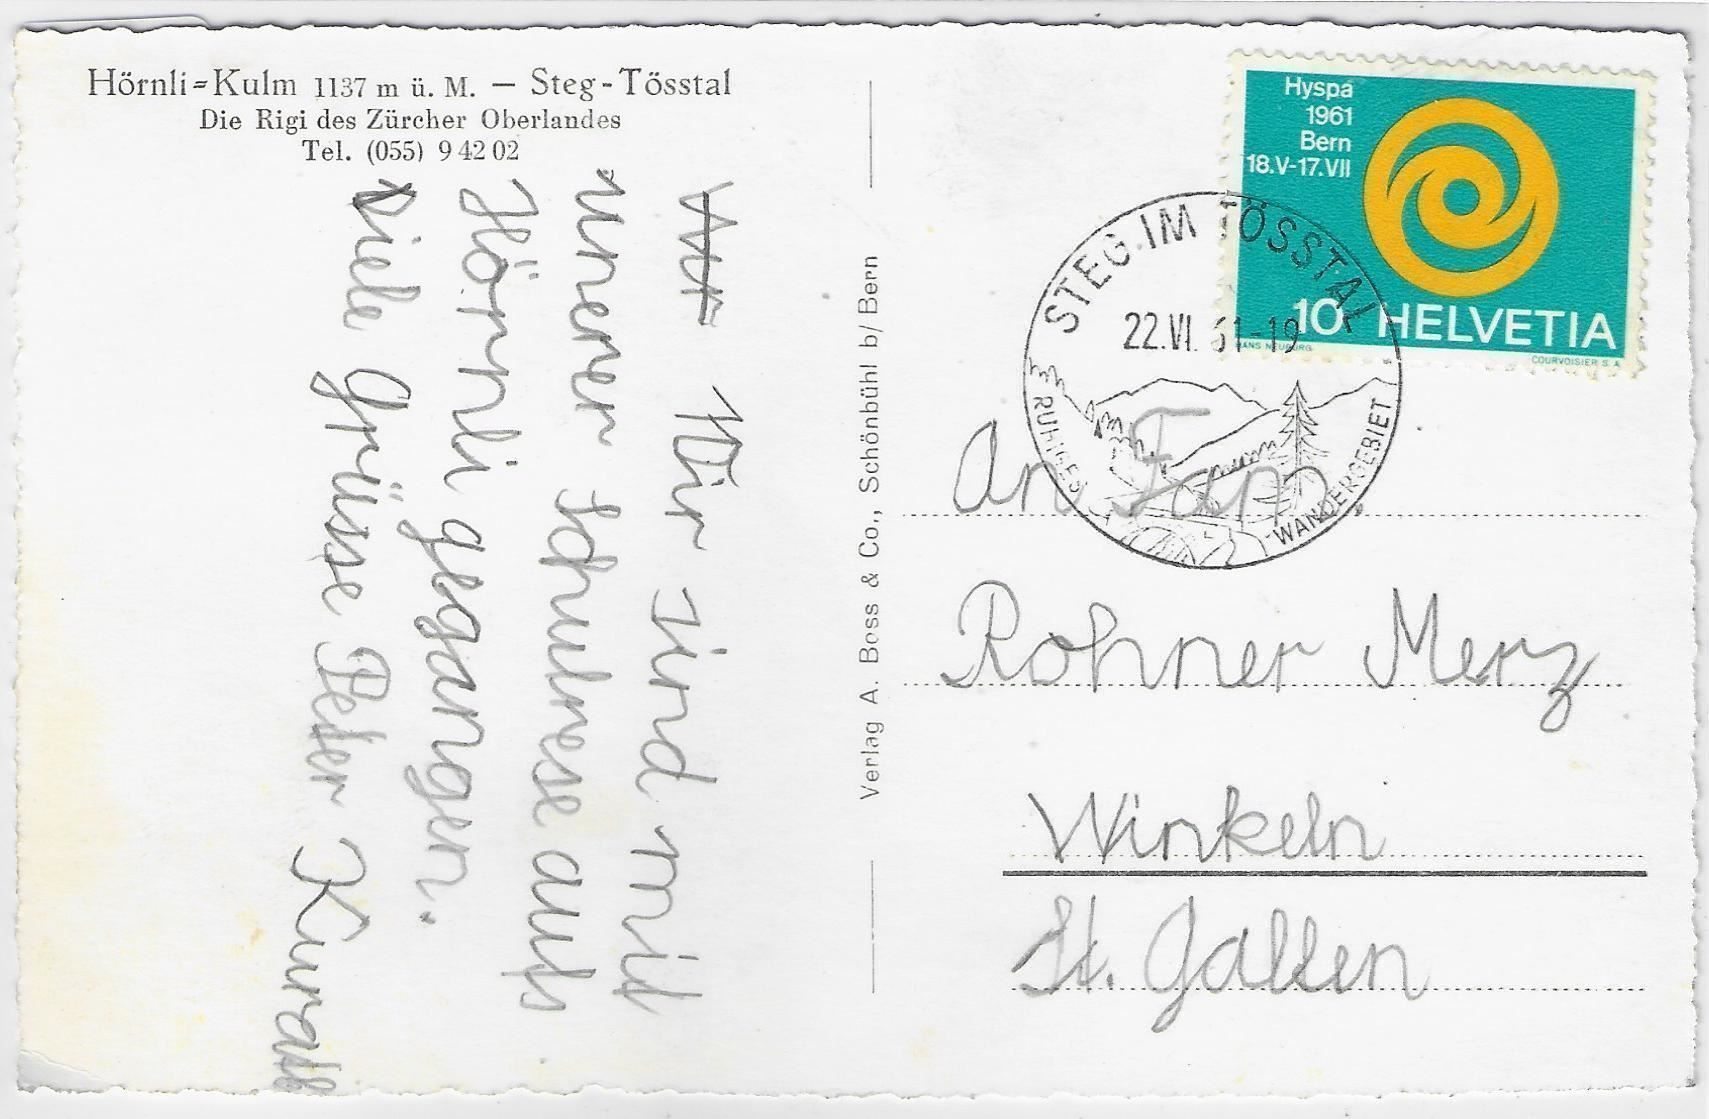 Hörnli=Kulm 1137 m ü. M. — Steg-Tösstal
Die Rigi des Zürcher Oberlandes
Tel. (055) 9 42 02
Wir sind mit
unerer Schulrese aufs
Hörnli gegangen.
Viele Grüsse Peter
Verlag A. Boss & Co., Schönbühl b/Bern
Hyspa
1961
Bern
18.V-17.VII
10 HELVETIA
HANS NEUBURG
COURVOISIER S.A.
STEG IM TÖSSTAL
22.VI. 61-19
RUHIGES WANDERGEBIET
An Fam.
Rohner Merz
Winkeln
St. Gallen